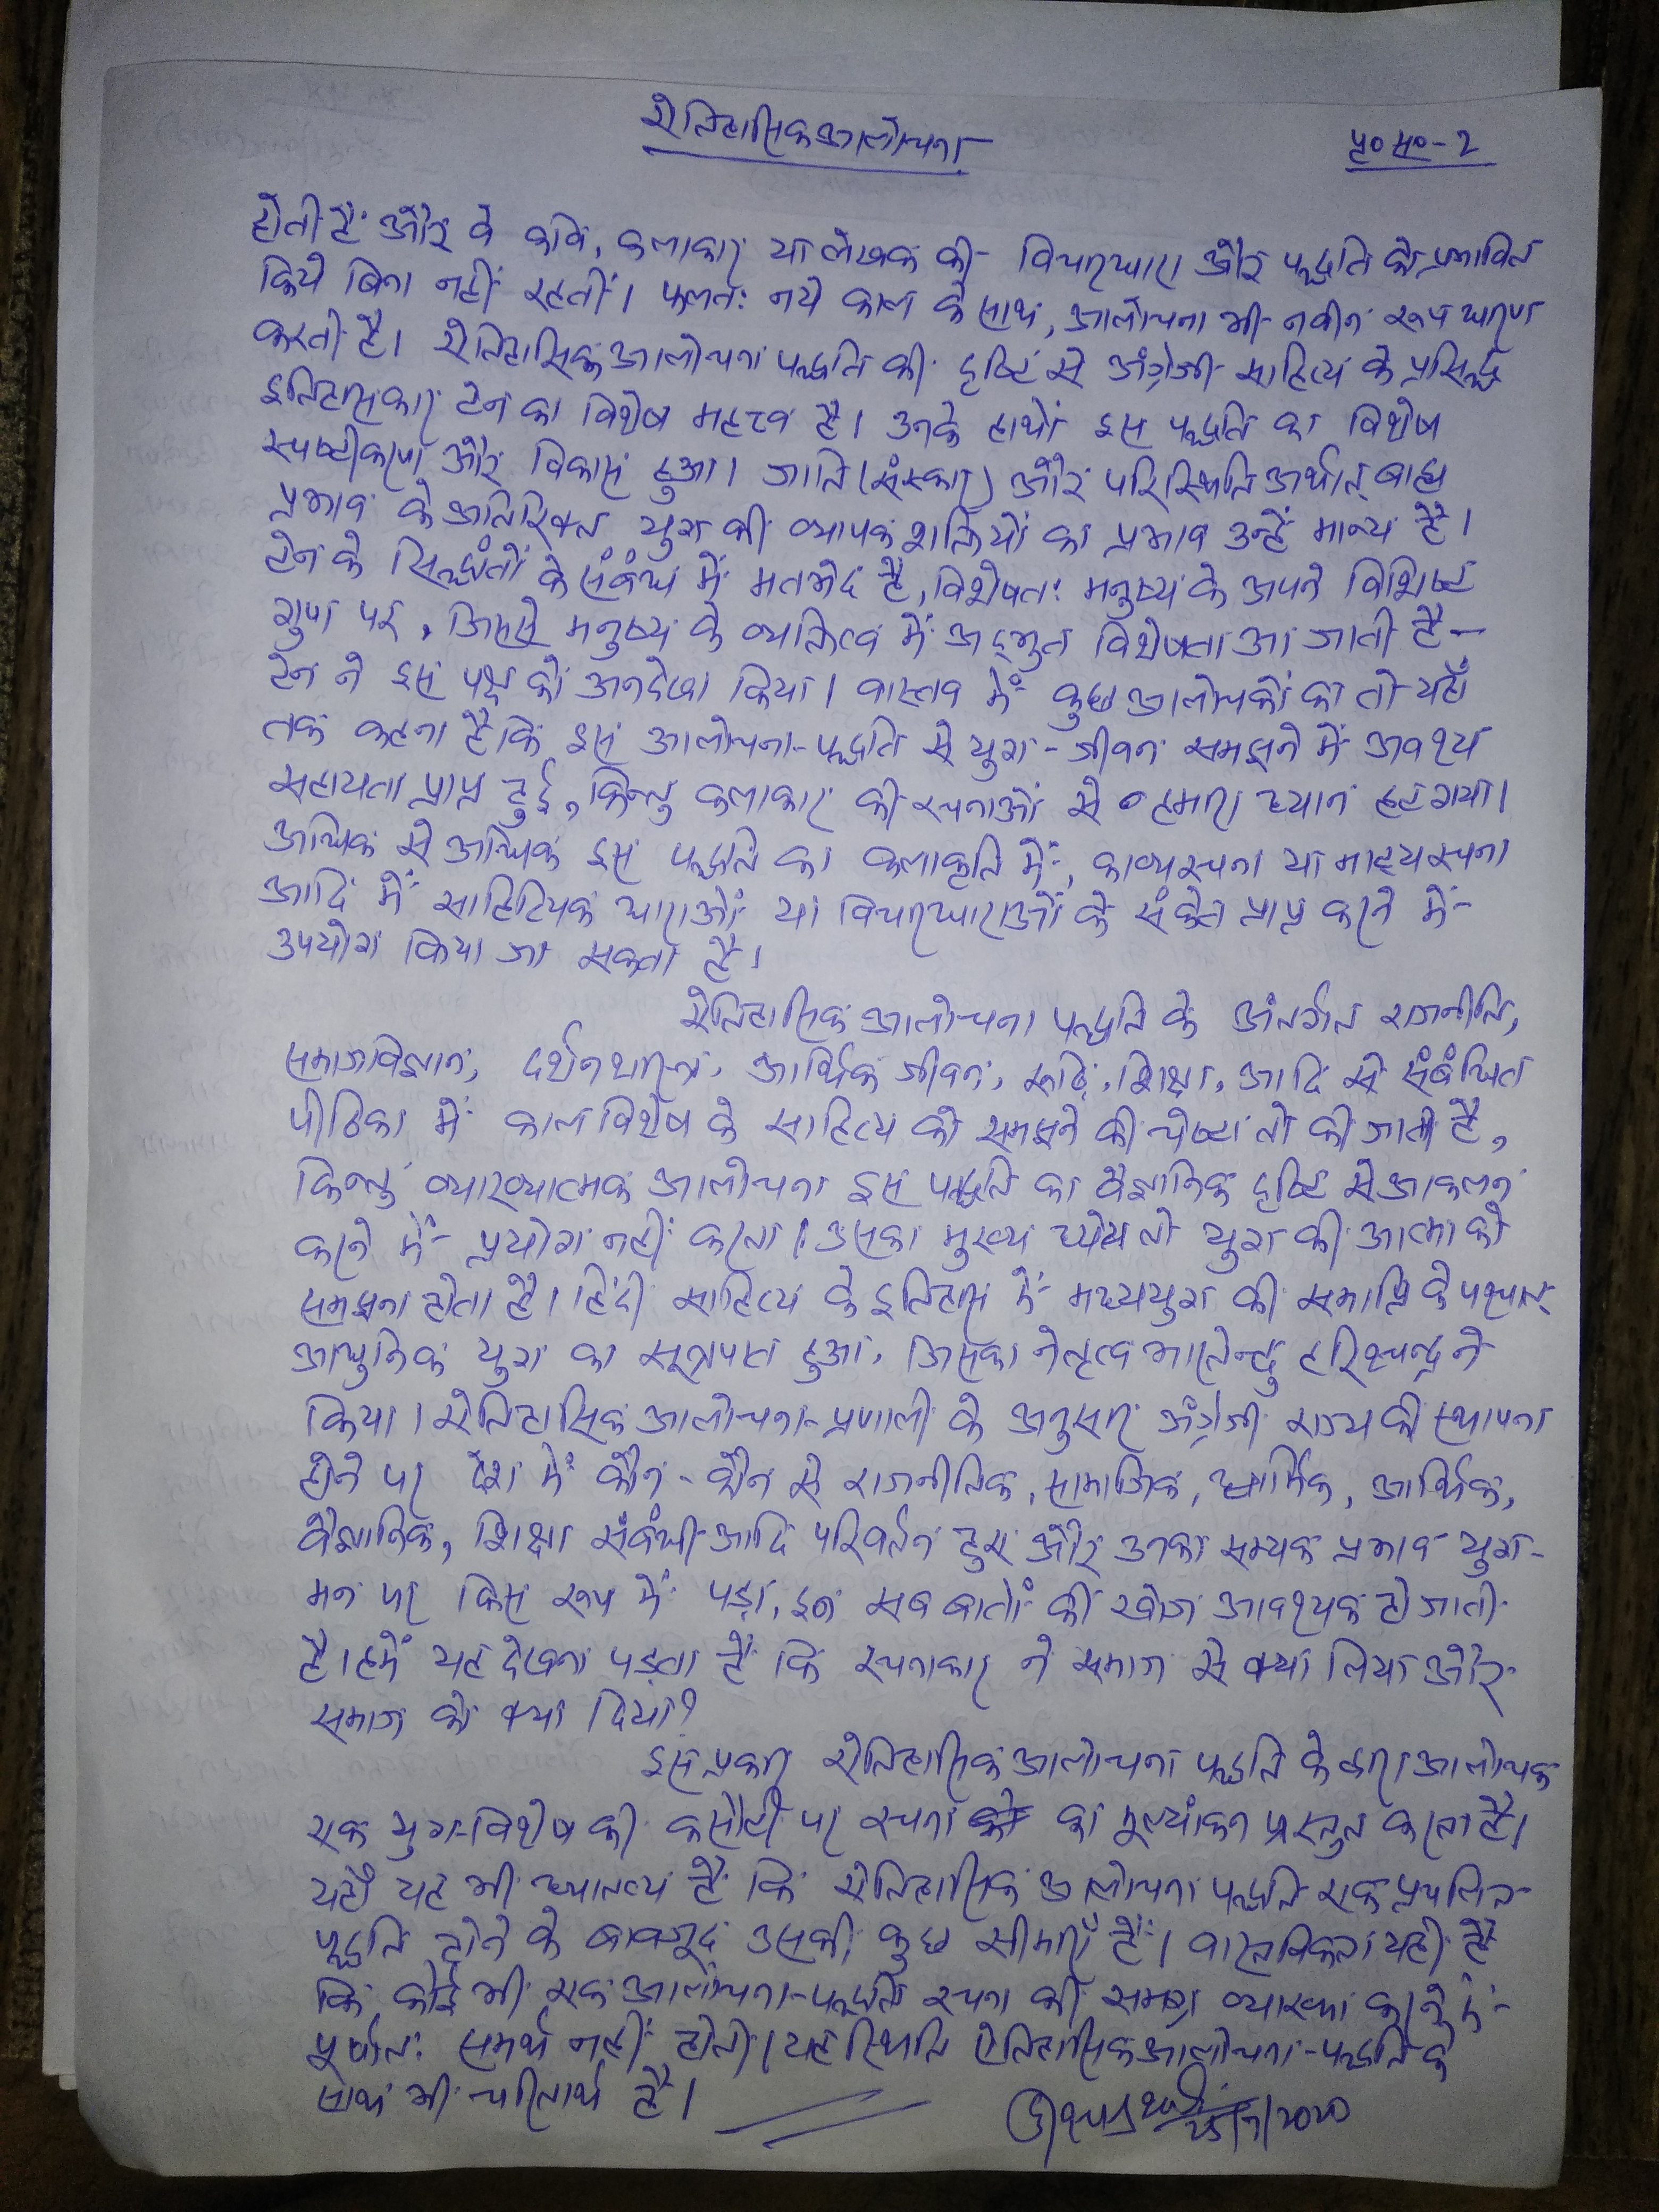 ऐतिहासिक आलोचना
पृ० सं०-2
होती हैं और वे कवि, कलाकार या लेखक की विचारधारा और पद्धति को प्रभावित
किये बिना नहीं रहतीं। फलतः नये काल के साथ, आलोचना भी नवीन रूप धारण
करती है। ऐतिहासिक आलोचना पद्धति की दृष्टि से अंग्रेजी साहित्य के प्रसिद्ध
इतिहासकार टेन का विशेष महत्त्व है। उनके हाथों इस पद्धति का विशेष
स्पष्टीकरण और विकास हुआ। जाति (संस्कार) और परिस्थिति अर्थात् बाह्य
प्रभाव के अतिरिक्त युग की व्यापक शक्तियों का प्रभाव उन्हें मान्य है।
टेन के सिद्धांतों के संबंध में मतभेद है, विशेषतः मनुष्य के अपने विशिष्ट
गुण पर, जिससे मनुष्य के व्यक्तित्व में अद्भुत विशेषता आ जाती है-
टेन ने इस पक्ष को अनदेखा किया। वास्तव में कुछ आलोचकों का तो यहाँ
तक कहना है कि इस आलोचना-पद्धति से युग-जीवन समझने में अवश्य
सहायता प्राप्त हुई, किन्तु कलाकार की रचनाओं से हमारा ध्यान हट गया।
अधिक से अधिक इस पद्धति का कलाकृति में, काव्य रचना या नाट्य रचना
आदि में साहित्यिक धाराओं या विचारधाराओं के संकेत प्राप्त करने में
उपयोग किया जा सकता है।
ऐतिहासिक आलोचना पद्धति के अंतर्गत राजनीति,
समाजविज्ञान, दर्शनशास्त्र, आर्थिक जीवन, रूढ़ि, शिक्षा, आदि से संबंधित
पीठिका में काल विशेष के साहित्य को समझने की चेष्टा तो की जाती है,
किन्तु व्याख्यात्मक आलोचना इस पद्धति का वैज्ञानिक दृष्टि से आकलन
करने में प्रयोग नहीं करता। उसका मुख्य ध्येय तो युग की आत्मा को
समझना होता है। हिंदी साहित्य के इतिहास में मध्ययुग की समाप्ति के पश्चात्
आधुनिक युग का सूत्रपात हुआ, जिसका नेतृत्व भारतेन्दु हरिश्चन्द्र ने
किया। ऐतिहासिक आलोचना-प्रणाली के अनुसार अंग्रेजी राज्य की स्थापना
होने पर देश में कौन-कौन से राजनीतिक, सामाजिक, धार्मिक, आर्थिक,
वैज्ञानिक, शिक्षा संबंधी आदि परिवर्तन हुए और उनका सम्यक प्रभाव युग-
मन पर किस रूप में पड़ा, इन सब बातों की खोज आवश्यक हो जाती
है। हमें यह देखना पड़ता है कि रचनाकार ने समाज से क्या लिया और
समाज को क्या दिया?
इस प्रकार ऐतिहासिक आलोचना पद्धति के द्वारा आलोचक
एक युग-विशेष की कसौटी पर रचना का मूल्यांकन प्रस्तुत करता है।
यहाँ यह भी ध्यातव्य है कि ऐतिहासिक आलोचना पद्धति एक प्रचलित
पद्धति होने के बावजूद उसकी कुछ सीमाएँ हैं। वास्तविकता यही है
कि कोई भी एक आलोचना-पद्धति रचना की समग्र व्याख्या करने में
पूर्णतः समर्थ नहीं होती। यह स्थिति ऐतिहासिक आलोचना-पद्धति के
साथ भी चरितार्थ है।